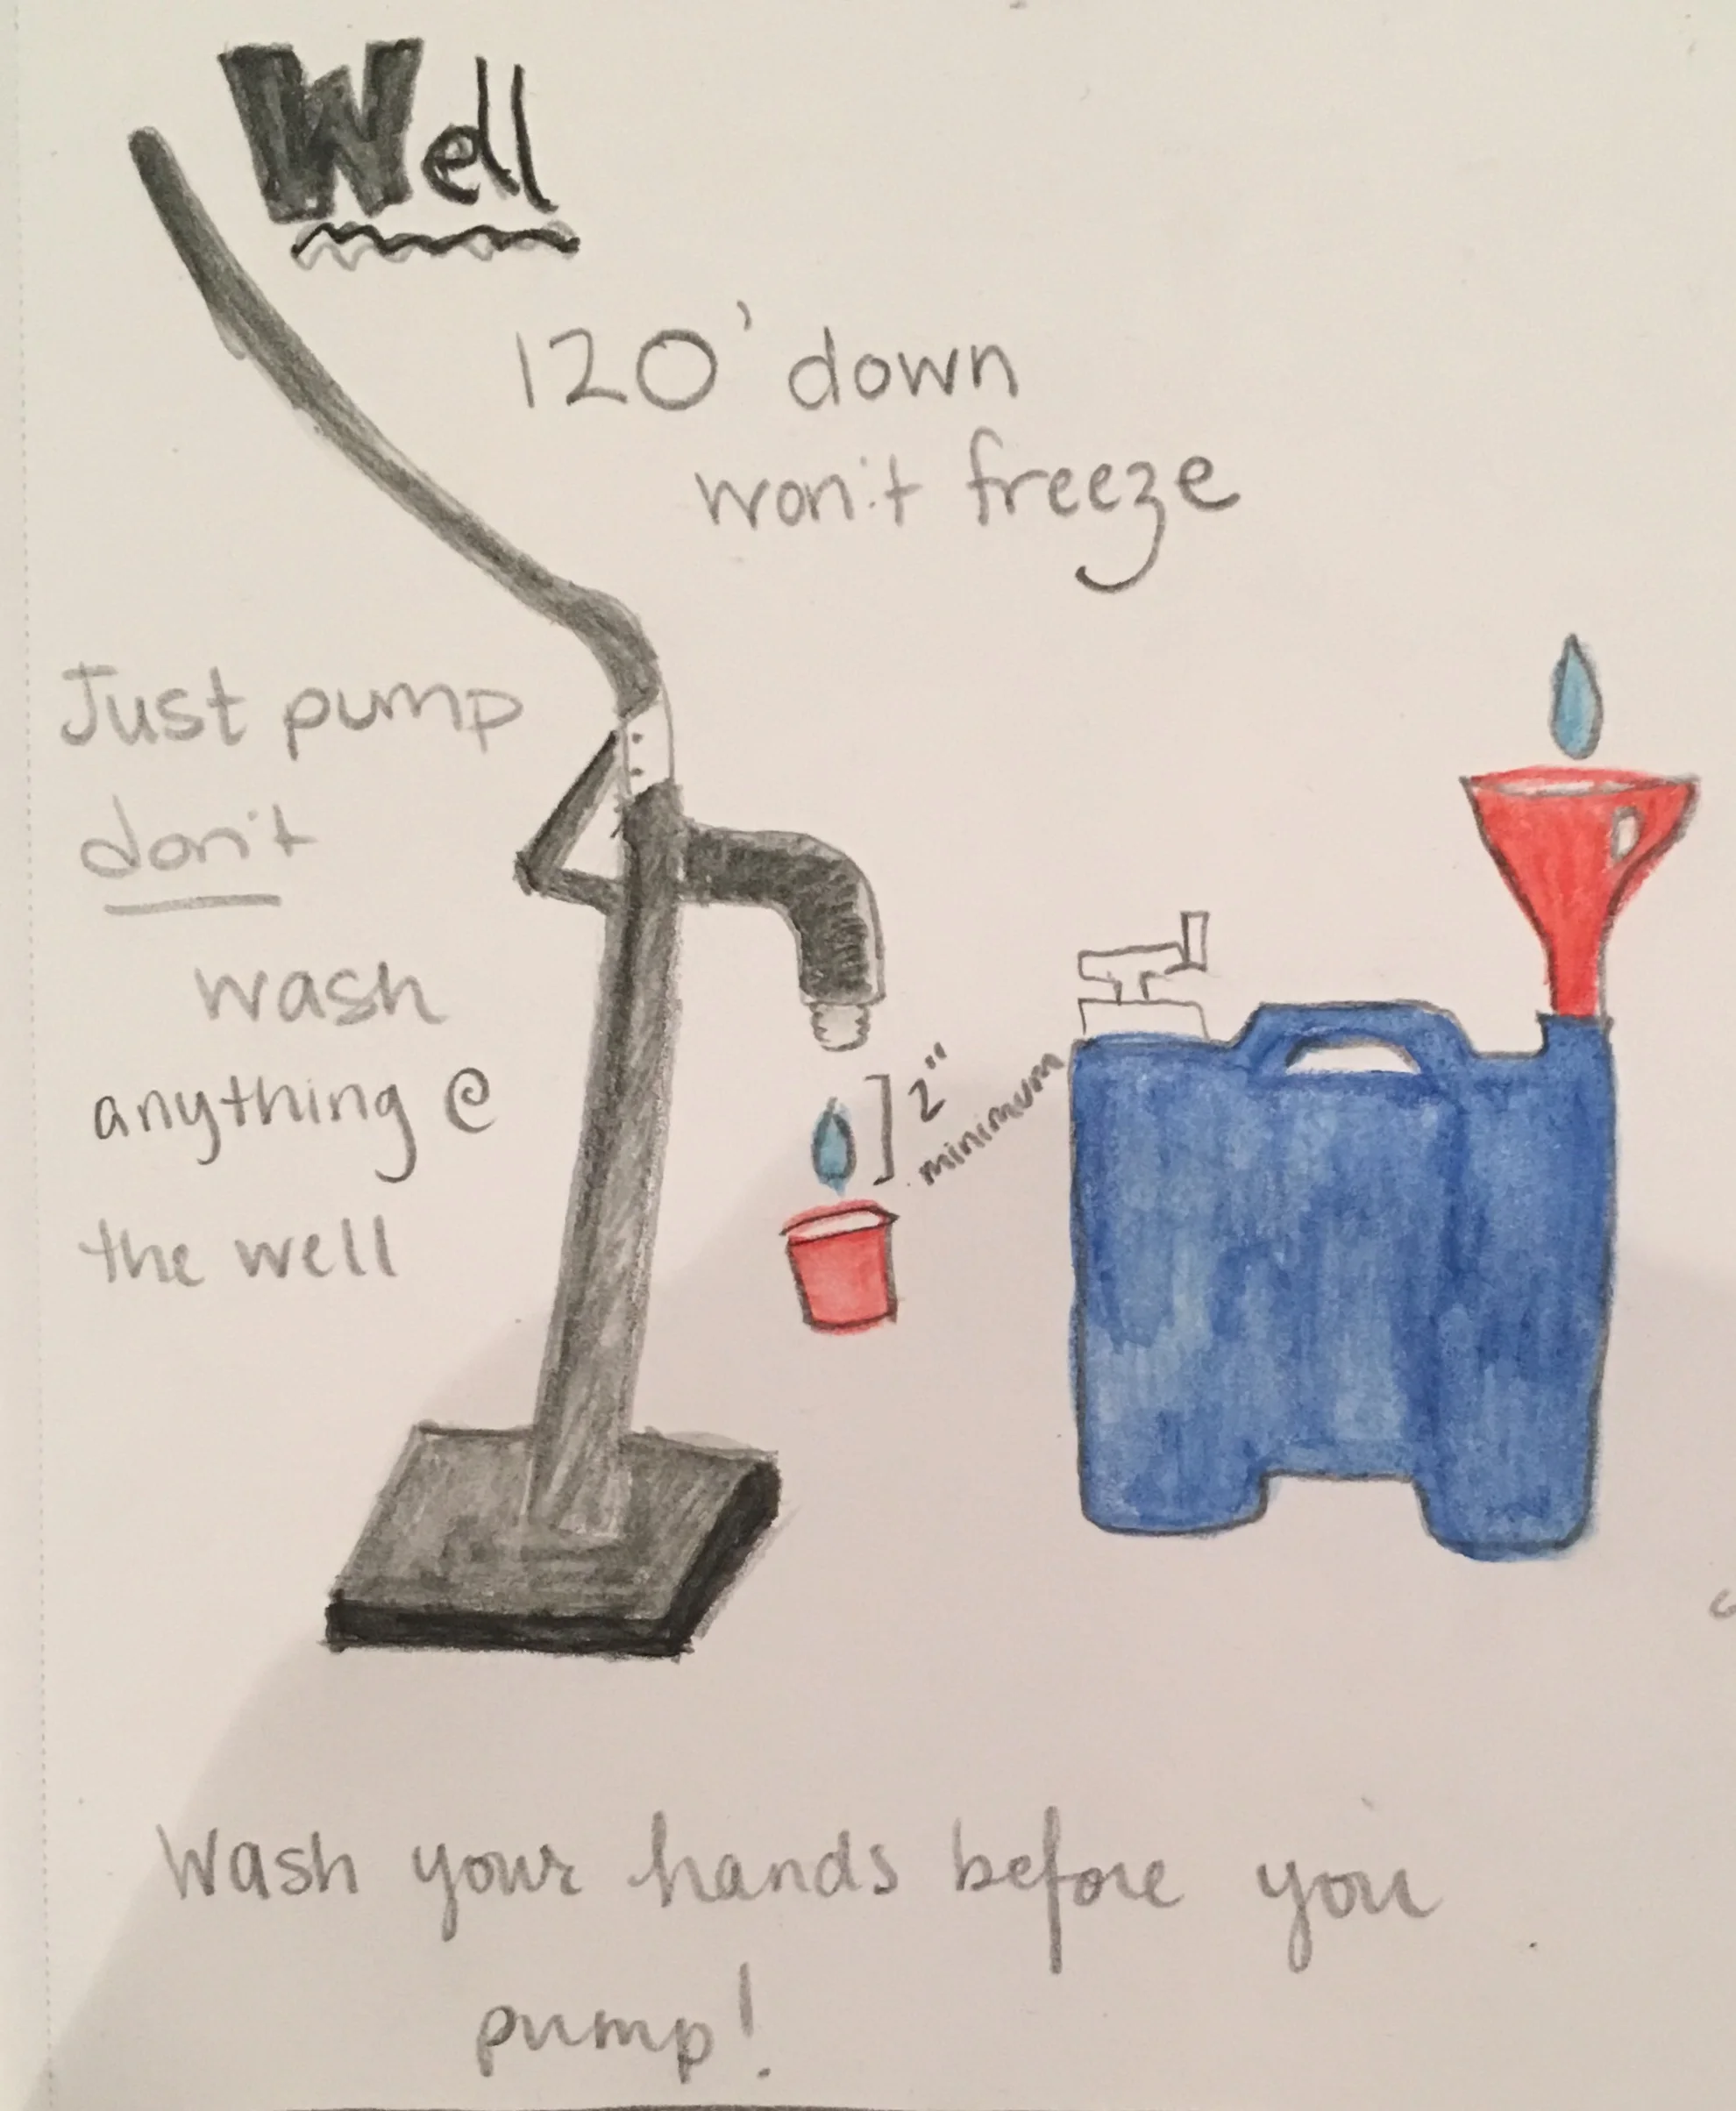 Well
120' down
won't freeze
Just pump
don't
wash
anything @
the well
2"
minimum
Wash your hands before you
pump!